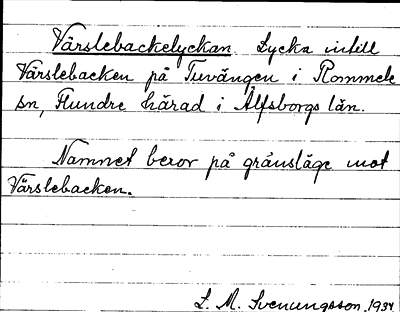 Värslebackelyckan. Lycka intill
Värslebacken på Tuvängen i Rommele
sn, Flundre härad i Älfsborgs län.
Namnet beror på gränsläge mot
Värslebacken.
L. M. Svenungsson, 1934